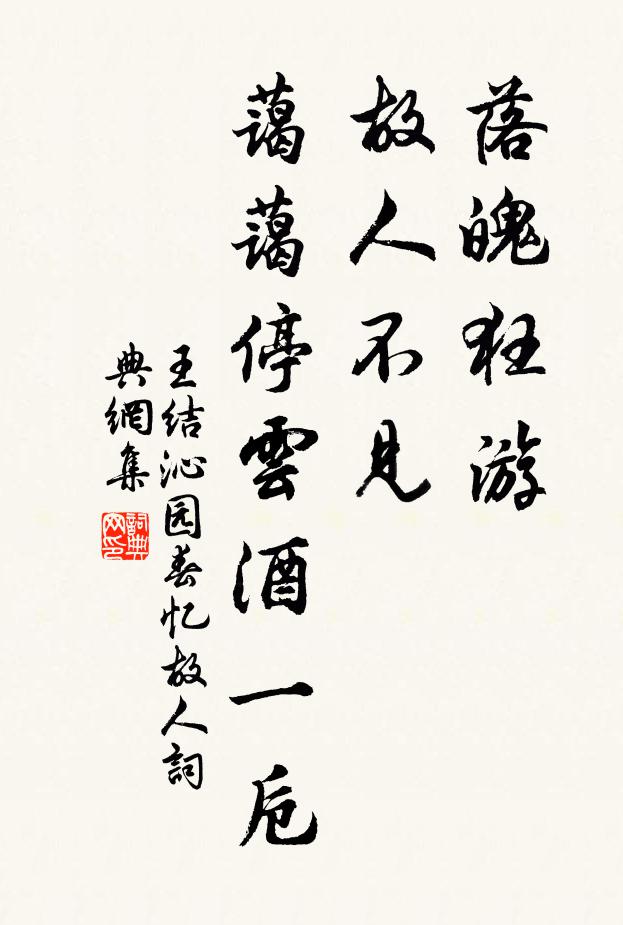 落魄狂游
故人不見
藹藹停雲酒一卮
王结沁园春忆故人詞
典網集
詞典網印